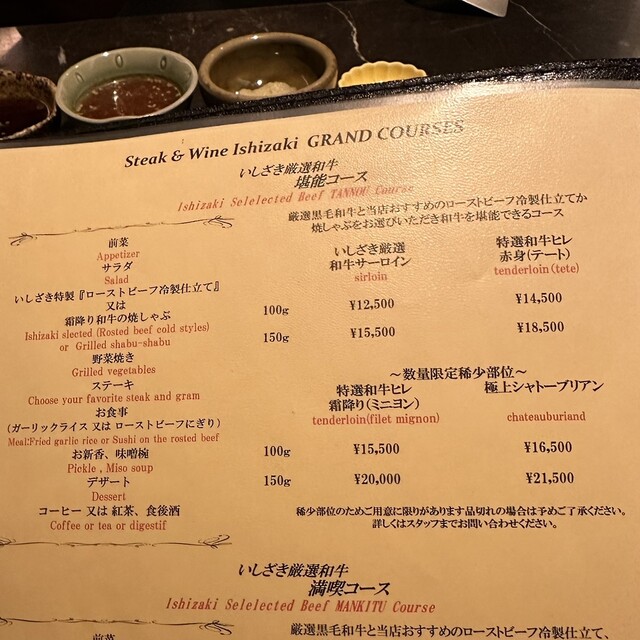 Steak & Wine Ishizaki GRAND COURSES
いしざき厳選和牛
堪能コース
Ishizaki Selelected Beef TANNOU Course
厳選黒毛和牛と当店おすすめのローストビーフ冷製仕立てか
焼しゃぶをお選びいただき和牛を堪能できるコース
前菜
Appetizer
サラダ
Salad
いしざき特製『ローストビーフ冷製仕立て』
又は
霜降り和牛の焼しゃぶ
Ishizaki slected (Rosted beef cold styles)
or Grilled shabu-shabu
野菜焼き
Grilled vegetables
ステーキ
Choose your favorite steak and gram
お食事
(ガーリックライス 又は ローストビーフにぎり)
Meal:Fried garlic rice or Sushi on the rosted beef
お新香、味噌椀
Pickle , Miso soup
デザート
Dessert
コーヒー 又は 紅茶、食後酒
Coffee or tea or digestif
いしざき厳選
和牛サーロイン
sirloin
特選和牛ヒレ
赤身(テート)
tenderloin (tete)
100g ¥12,500 ¥14,500
150g ¥15,500 ¥18,500
～数量限定稀少部位～
特選和牛ヒレ
霜降り(ミニヨン)
tenderloin(filet mignon)
極上シャトーブリアン
chateauburiand
100g ¥15,500 ¥16,500
150g ¥20,000 ¥21,500
稀少部位のためご用意に限りがあります品切れの場合は予めご了承ください。
詳しくはスタッフまでお問い合わせください。
いしざき厳選和牛
満喫コース
Ishizaki Selelected Beef MANKITU Course
前菜
厳選黒毛和牛と当店おすすめのローストビーフ冷製仕立て、